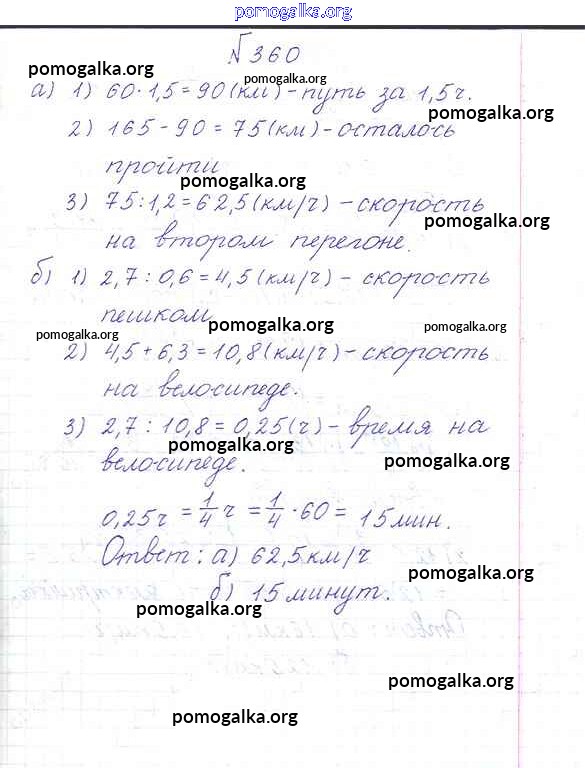 pomogalka.org
№360
pomogalka.org
pomogalka.org
а) 1) 60·1,5=90(км)-путь за 1,5ч.
pomogalka.org
2) 165-90=75(км)-осталось
пройти
pomogalka.org
3) 75:1,2=62,5(км/ч)-скорость
pomogalka.org
на втором перегоне.
б) 1) 2,7:0,6=4,5(км/ч)-скорость
пешком
pomogalka.org
pomogalka.org
pomogalka.org
2) 4,5+6,3=10,8(км/ч)-скорость
на велосипеде.
3) 2,7:10,8=0,25(ч)-время на
pomogalka.org
велосипеде.
pomogalka.org
0,25ч = 1/4 ч = 1/4 · 60 = 15мин.
Ответ: а) 62,5км/ч
pomogalka.org
б) 15минут.
pomogalka.org
pomogalka.org
pomogalka.org